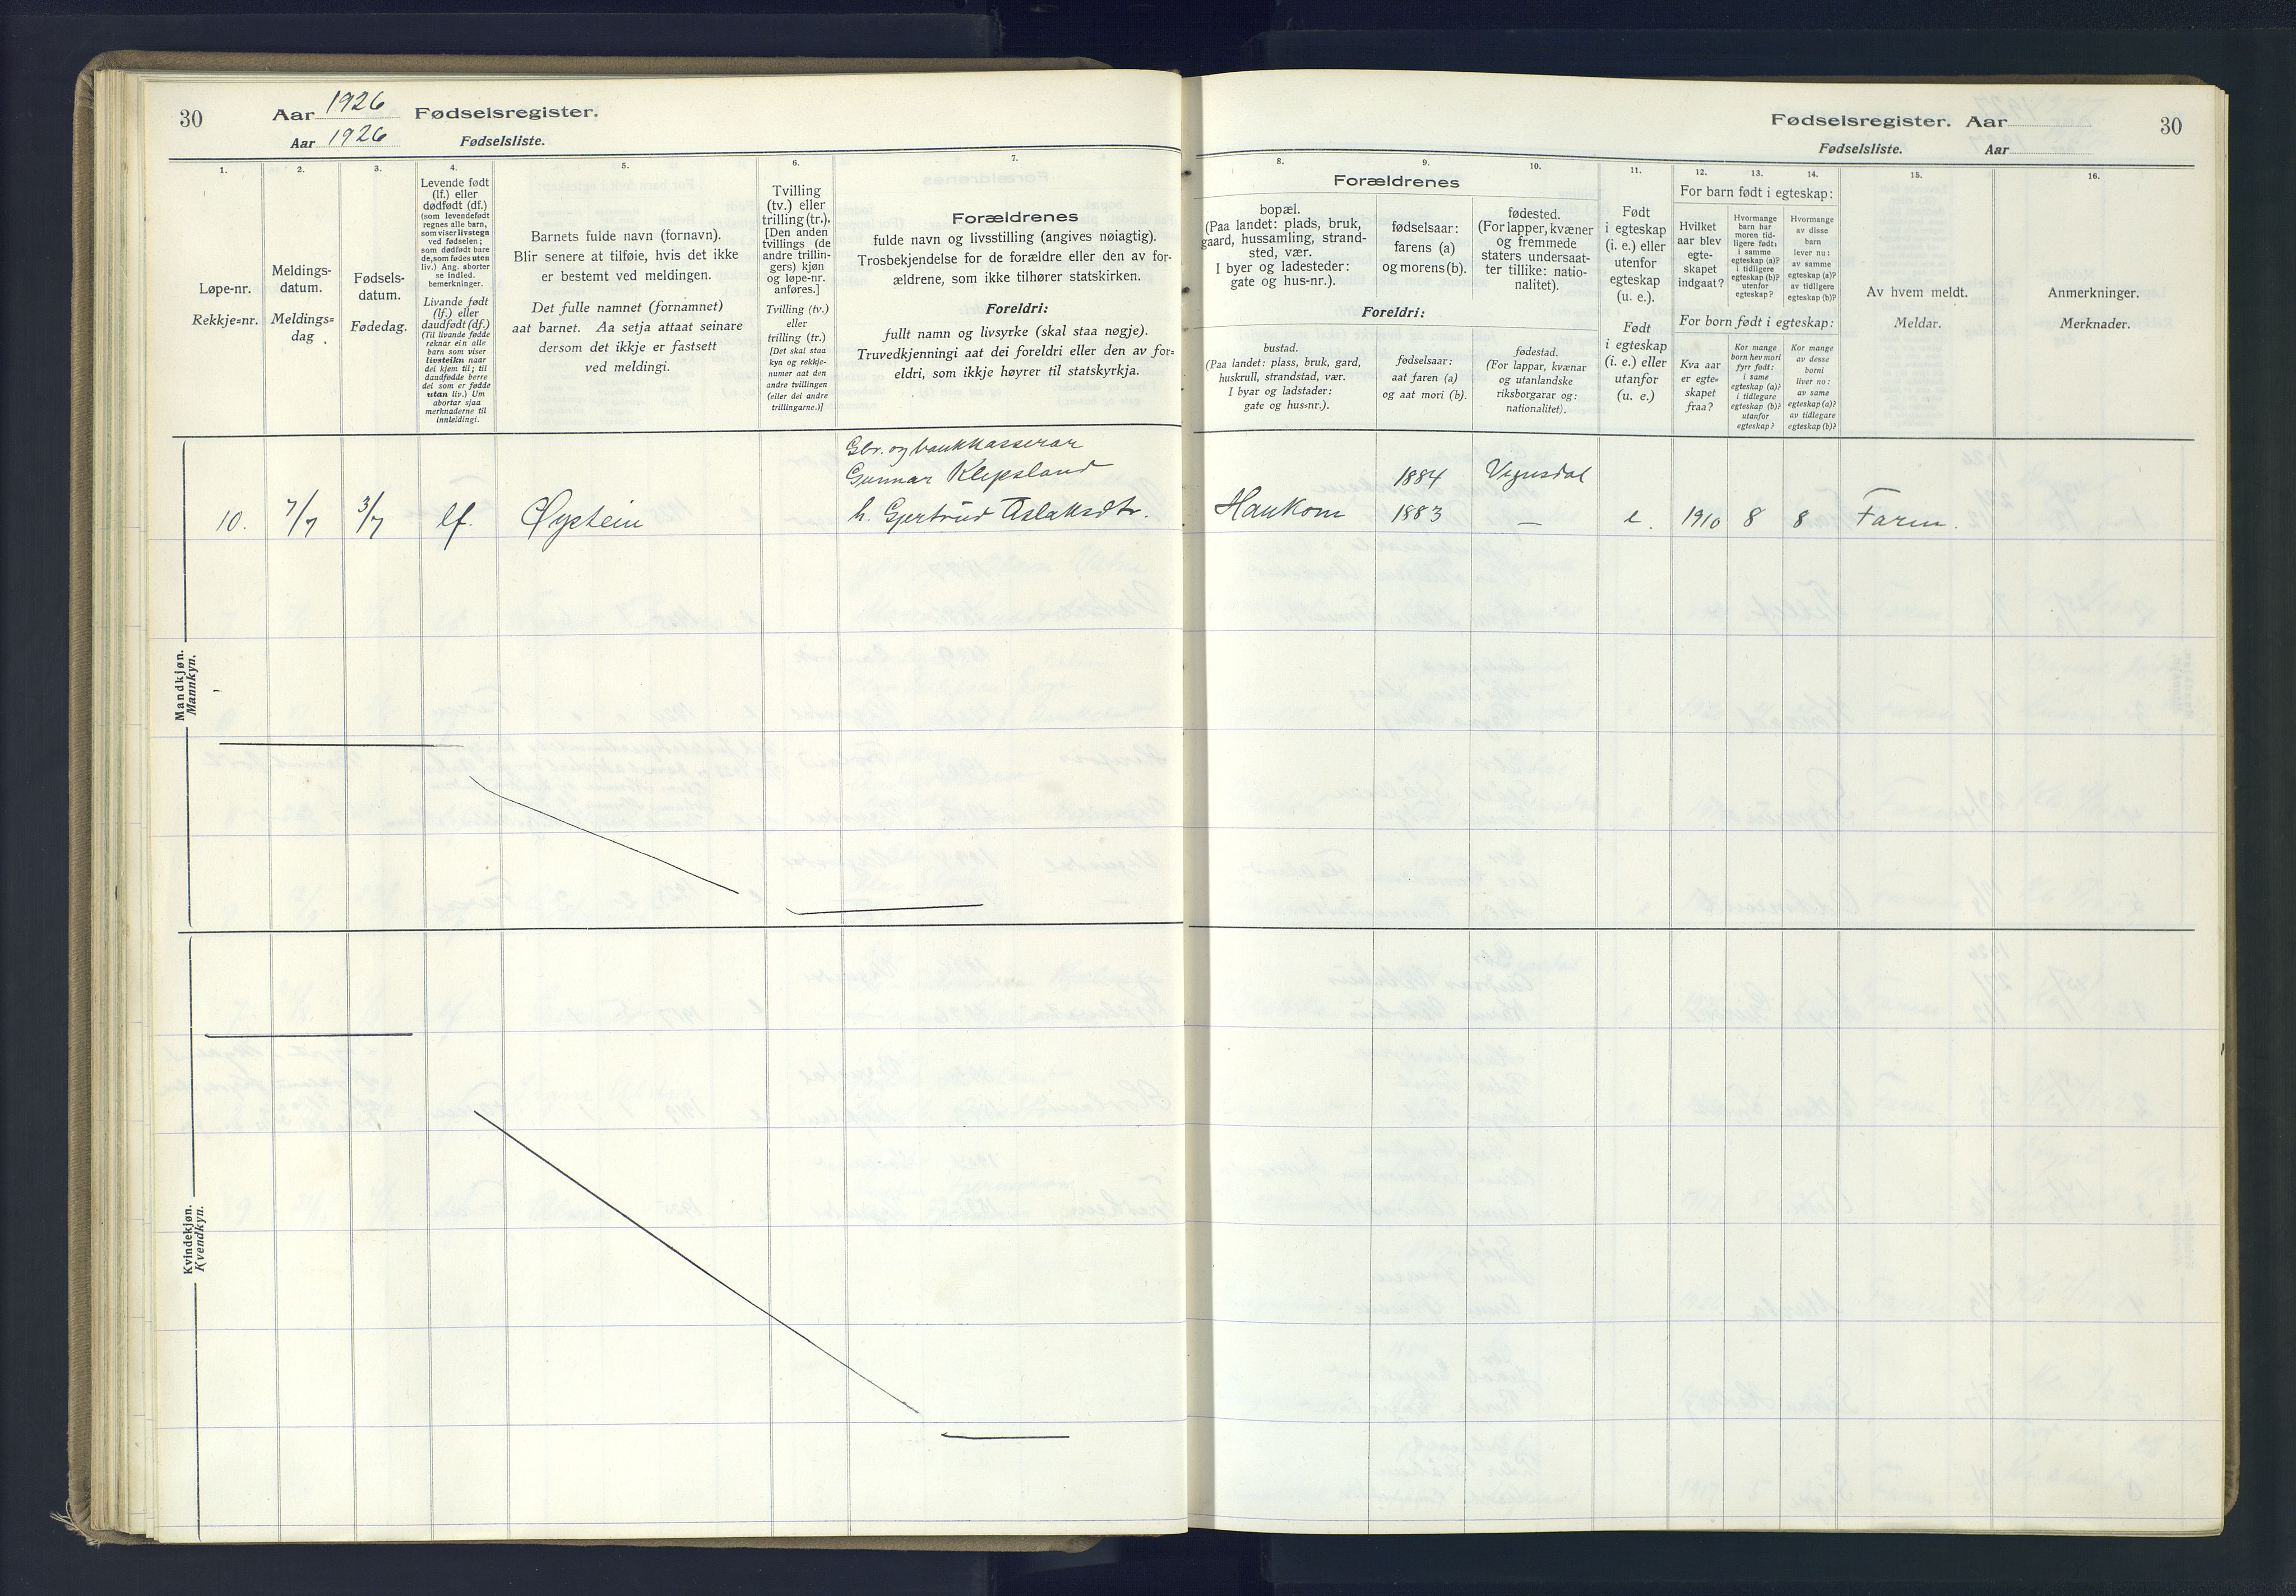 30
Aar 1926 Fødselsregister.
Aar 1926 Fødselsliste.
1.
Løpe-nr.
Rekkje=nr.
2.
Meldings-
datum.
Meldings=
dag
3.
Fødsels-
datum.
Fødedag.
4.
Levende født
(lf.) eller
dødfødt (df.)
(som levendefødt
regnes alle barn,
som viser livstegn
ved fødselen;
som dødfødt bare
de, som fødes uten
liv.) Ang. aborter
se indled.
bemerkninger.
Livande født
(lf.) eller
daudfødt (df.)
(Til livande fødde
reknar ein alle
barn som viser
livsteikn naar
dei kjem til; til
daudfødde berre
dei som er fødde
utan liv.) Um
abortar sjaa
merknaderne til
innleidingi.
5.
Barnets fulde navn (fornavn).
Blir senere at tilføie, hvis det ikke
er bestemt ved meldingen.
Det fulle namnet (fornamnet)
aat barnet. Aa setja attaat seinare
dersom det ikkje er fastsett
ved meldingi.
6.
Tvilling
(tv.) eller
trilling (tr.).
[Den anden
tvillings (de
andre trillin-
gers) kjøn
og løpe-nr.
anføres.]
Tvilling (tv.)
eller
trilling (tr.)
[Det skal staa
kyn og rekkje-
numer aat den
andre tvillingen
(eller dei andre
trillingarne.)]
7.
Forældrenes
fulde navn og livsstilling (angives nøiagtig).
Trosbekjendelse for de forældre eller den av for-
ældrene, som ikke tilhører statskirken.
Foreldri:
fullt namn og livsyrke (skal staa nøgje).
Truvedkjenningi aat dei foreldri eller den av for=
eldri, som ikkje høyrer til statskyrkja.
Mandkjøn.
Mannkyn.
Gbr. og bankkasserar
Gunnar Klepsland
10. 7/7 3/7 lf. Øystein h. Gjertrud Aslaksdtr.
Kvindekjøn.
Kvendkyn.
Fødselsregister. Aar
30
Fødselsliste. Aar
8.
9.
10.
Forældrenes
bopæl.
(Paa landet: plads, bruk,
gaard, hussamling, strand-
sted, vær.
I byer og ladesteder:
gate og hus-nr.).
fødselsaar:
farens (a)
og morens (b).
fødested.
(For lapper, kvæner
og fremmede
staters undersaat-
ter tillike: natio-
nalitet).
Foreldri:
bustad.
(Paa landet: plass, bruk, gard,
huskrull, strandstad, vær.
I byar og ladstader:
gate og hus=nr.).
fødselsaar:
aat faren (a)
og aat mori (b).
fødestad.
(For lappar, kvænar
og utanlandske
riksborgarar og:
nationalitet).
11.
Født
i egteskap
(i. e.) eller
utenfor
egteskap
(u. e.).
Født
i egteskap
(i. e.) eller
utanfor
(u. e.)
12.
13.
14.
For barn født i egteskap:
Hvilket
aar blev
egte-
skapet
indgaat?
Hvormange
barn har
moren tid-
ligere født:
i samme
egteskap (a)?
i tidligere
egteskap (b)?
utenfor
egteskap?
Hvormange
av disse
barn
lever nu:
av samme
egteskap (a)?
av tidligere
egteskap (b)?
For born født i egteskap:
Kva aar
er egte=
skapet
fraa?
Kor mange
born hev mori
fyrr født:
i same
egteskap (a)?
i tidlegare
egteskap (b)?
utanfor
egteskap?
Kor mange
av desse
borni
liver no:
av same
egteskap (a)?
av tidlegare
egteskap (b)?
15.
Av hvem meldt.
Meldar.
16.
Anmerkninger.
Merknader.
1884 Vegusdal
Haukom 1883 — e. 1910 8 8 Faren.